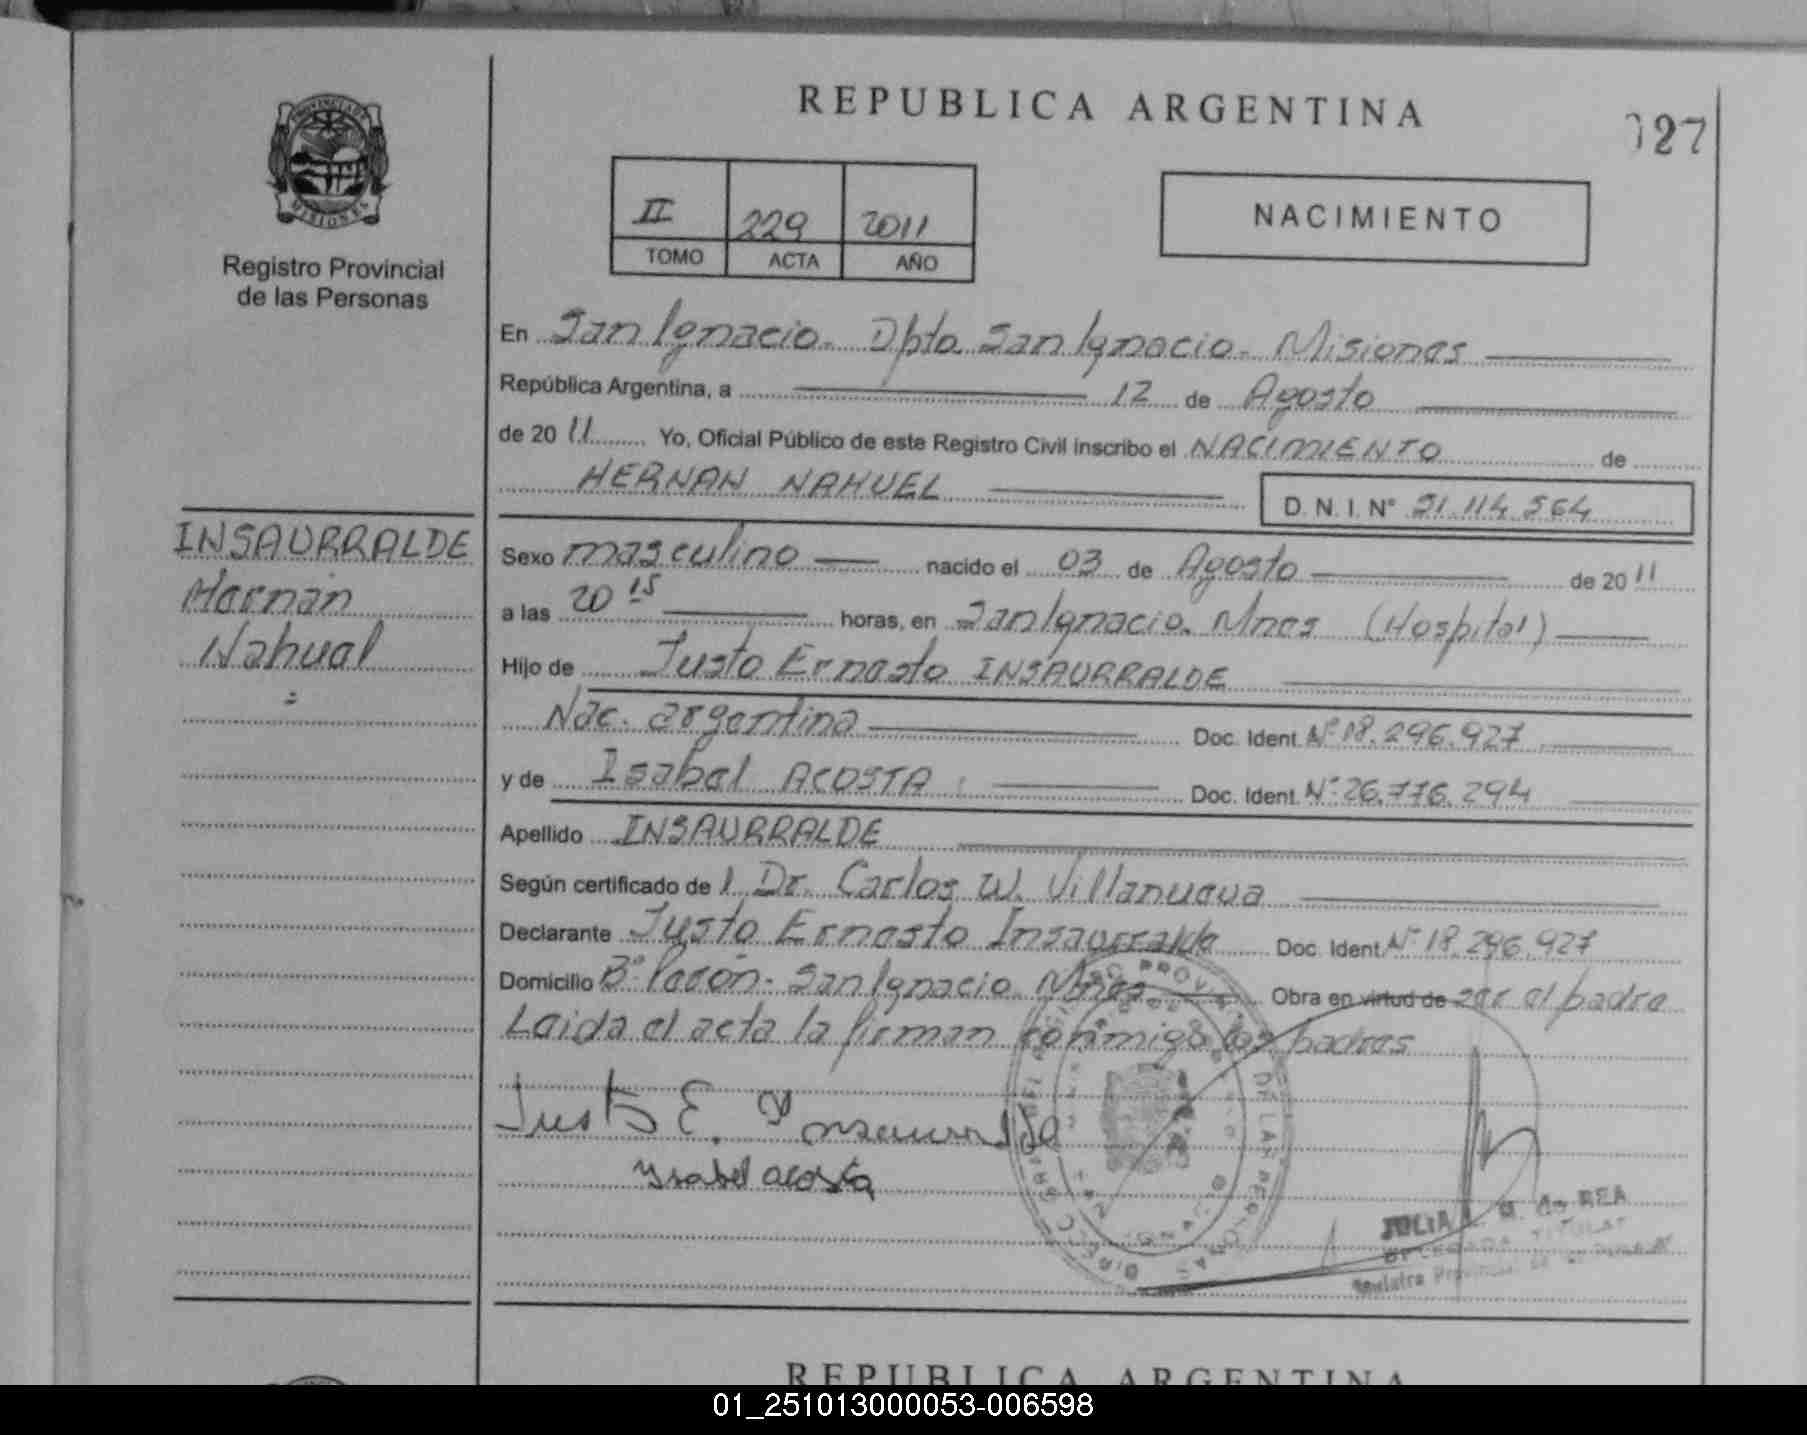 REPUBLICA ARGENTINA
027
PROVINCIA DE MISIONES
Registro Provincial
de las Personas
II 229 2011
TOMO ACTA AÑO
NACIMIENTO
En San Ignacio. Dpto. San Ignacio. Misiones
República Argentina, a 12 de Agosto
de 2011 Yo, Oficial Público de este Registro Civil inscribo el NACIMIENTO de
HERNAN NAHUEL D.N.I. N° 51.114.564
INSAURRALDE
Hernan
Nahuel
Sexo masculino nacido el 03 de Agosto de 2011
a las 20 15 horas, en San Ignacio. Mnes (Hospital)
Hijo de Justo Ernesto INSAURRALDE
Nac. argentina Doc. Ident. N° 18.296.927
y de Isabel ACOSTA Doc. Ident. N° 26.776.294
Apellido INSAURRALDE
Según certificado de l Dr. Carlos W. Villanueva
Declarante Justo Ernesto Insaurralde Doc. Ident. N° 18.296.927
Domicilio B° San Ignacio. Mnes Obra en virtud de ser el padre
Leida el acta la firman conmigo los padres
Justo E. Insaurralde
Ysabel acosta
JULIA M. de REA
DELEGADA TITULAR
Registro Provincial de las Personas
REPUBLICA ARGENTINA
01_251013000053-006598